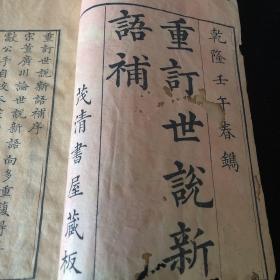 乾隆壬午春鐫
重訂世說新
語補
茂清書屋藏板
重訂世說新語補序
宋董廣川論世說新語向多重複